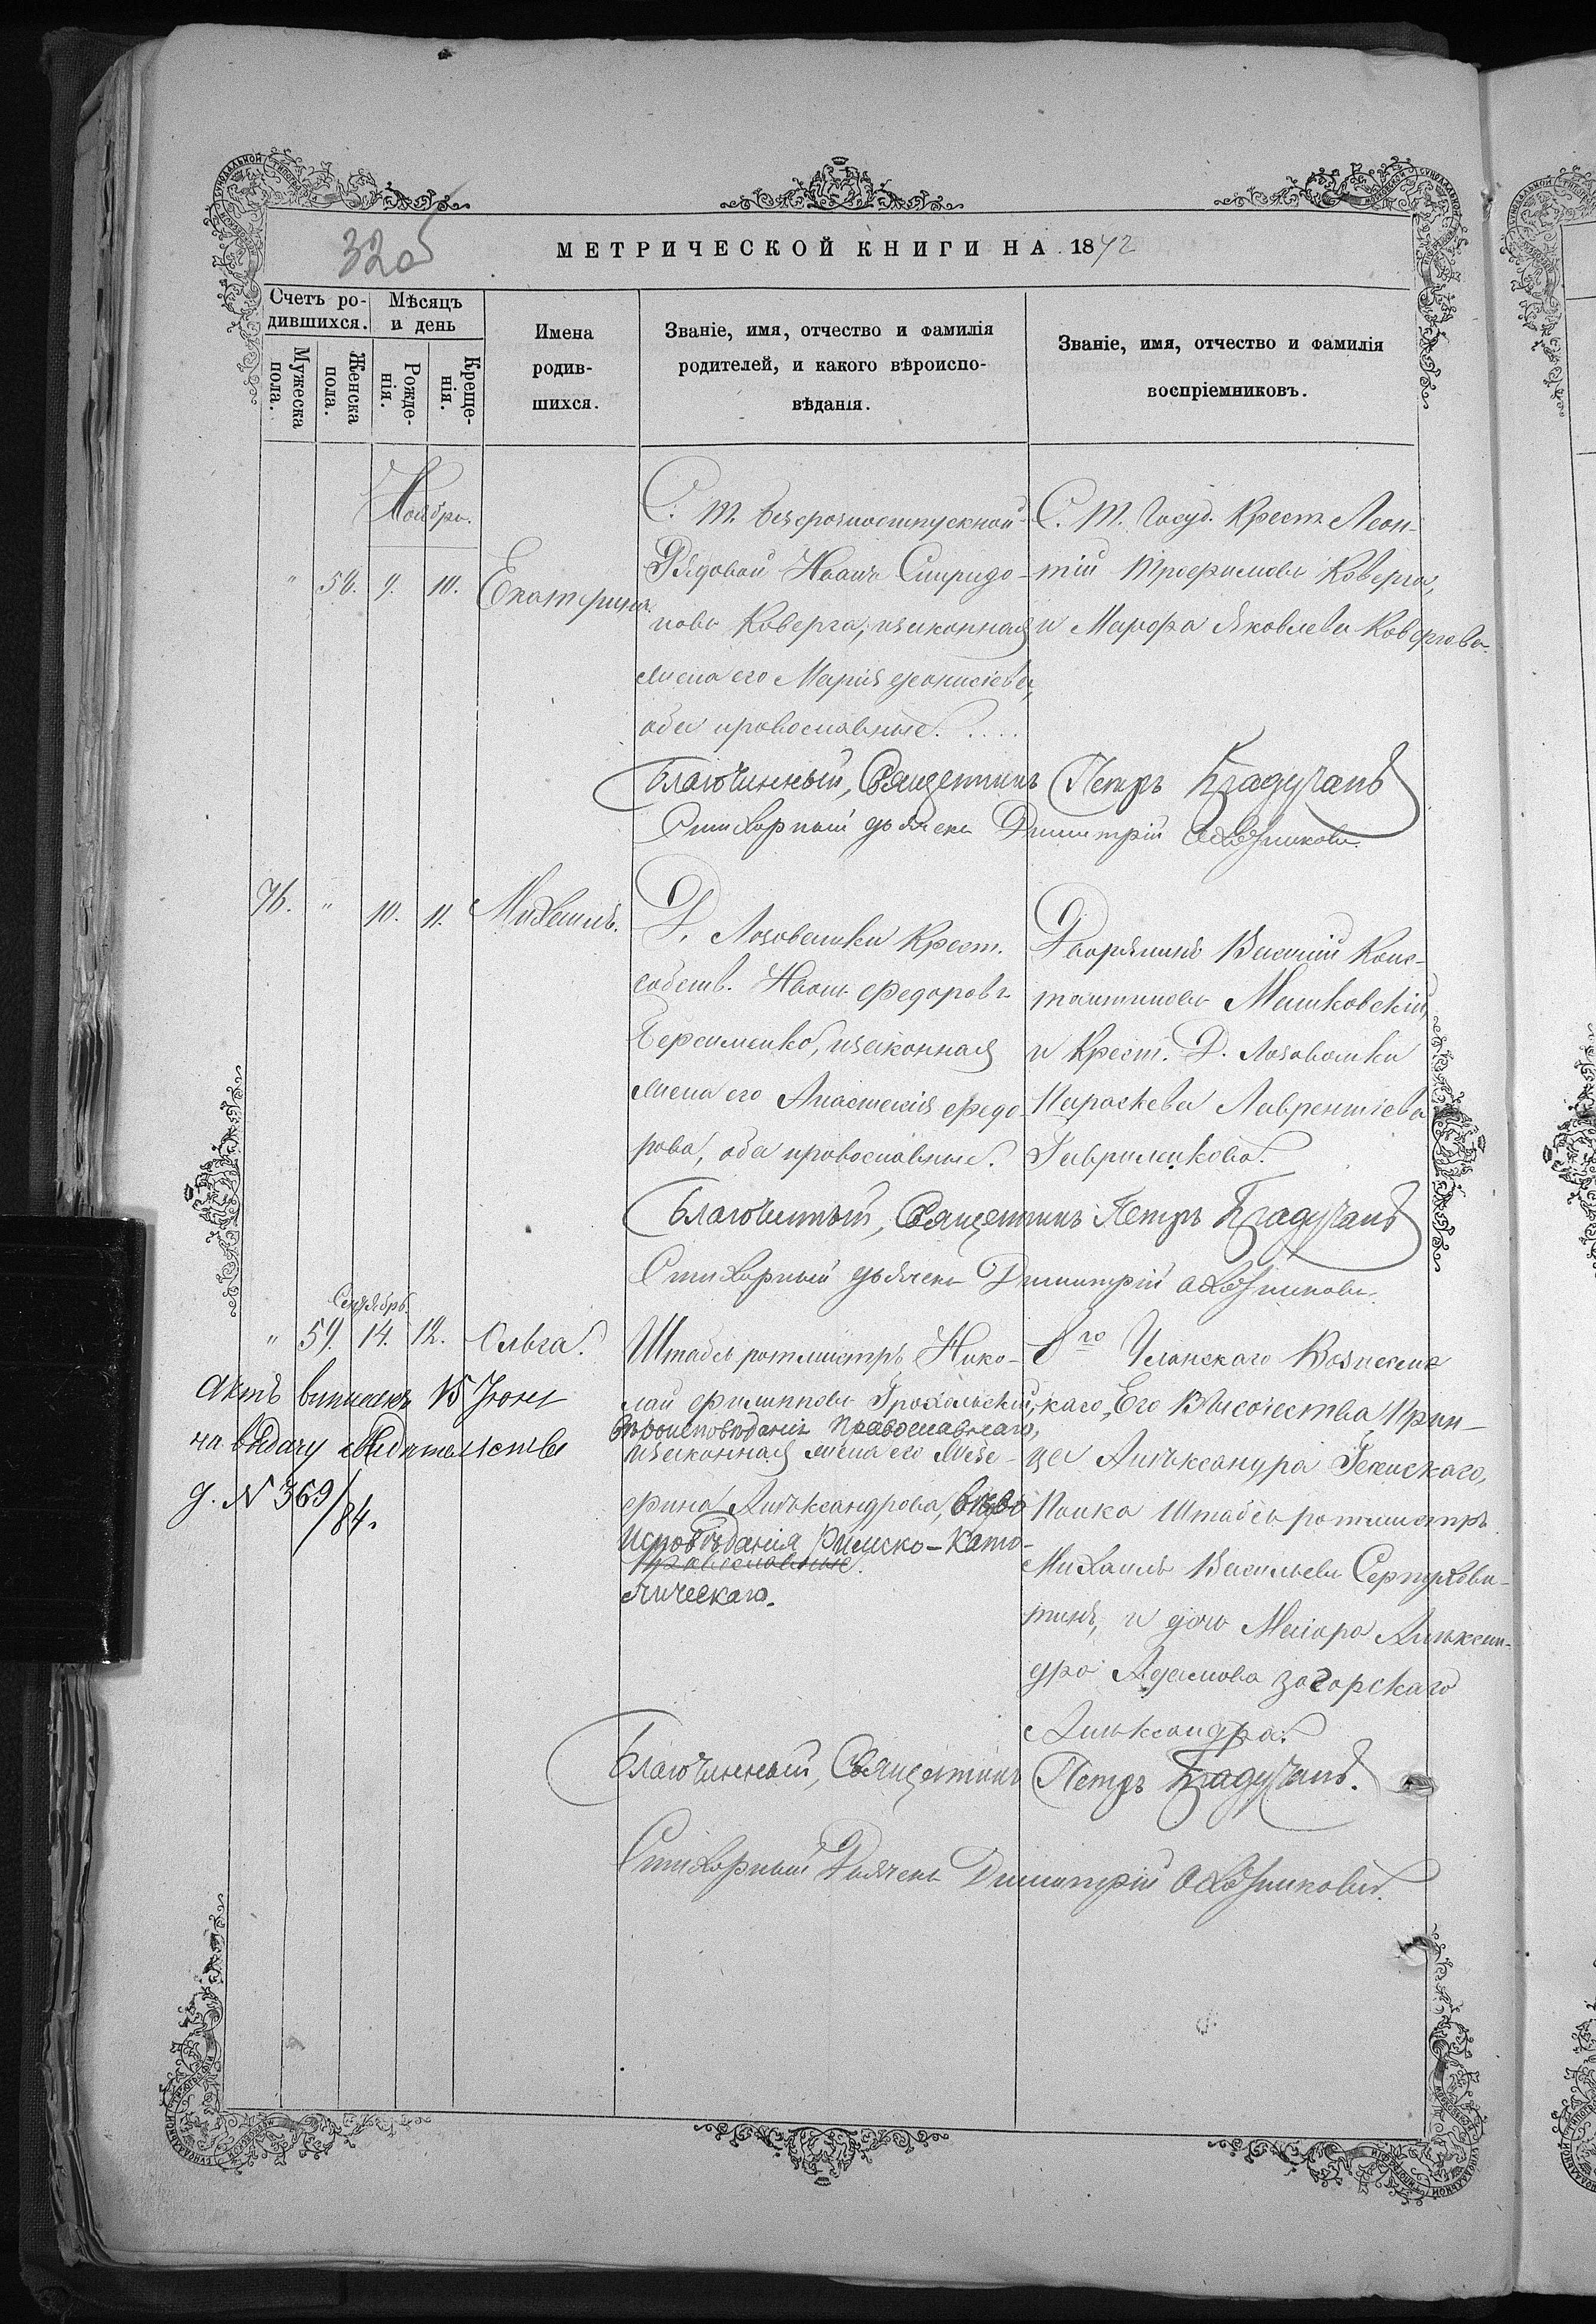 32об
МЕТРИЧЕСКОЙ КНИГИ НА 1872
Счетъ ро-
дившихся.
Мѣсяцъ
и день
Мужеска
пола.
Женска
пола.
Рожде-
нія.
Креще-
нія.
Имена
родив-
шихся.
Званіе, имя, отчество и фамилія
родителей, и какого вѣроиспо-
вѣданія.
Званіе, имя, отчество и фамилія
воспріемниковъ.
Ноября.
" 58. 9. 10. Екатерина.
С. М. безсрочноотпускной
Рядовой Иванъ Спиридо-
новъ Коверга, и законная
жена его Марія Діонисіева,
оба православные.
С. М. Госуд. Крест. Леон-
тій Трофимовъ Коверга,
и Марфа Яковлева Ковергова.
Благочинный, Священникъ Петръ
Стихарный дьячекъ Димитрій
76. " 10. 11. Михаилъ.
Д. Лозоватки Крест.
собств. Иванъ Федоровъ
Герасименко, и законная
жена его Анастасія Федо-
рова, оба православные.
Дворянинъ Василій Конс-
тантиновъ Машковскій,
и Крест. Д. Лозоватки
Параскева Лаврентіева
Гавриленкова.
Благочинный, Священникъ Петръ
Стихарный дьячекъ Димитрій
Сентябрь.
" 59. 14. 12. Ольга.
Штабсъ ротмистръ Нико-
лай Филипповъ Грохольскій,
вѣроисповѣданія Православнаго,
и законная жена его Жозе-
фина Александрова, вѣро
исповѣданія Римско-Като-
православные.
лическаго.
8го Уланскаго Вознесенс
каго, Его Высочества Прин-
ца Александра Гесенскаго,
Полка Штабсъ ротмистръ
Михаилъ Васильевъ Серпухови-
тинъ, и дочь Маіора Алексан-
дра Адамова Загорскаго
Александра.
актъ выписанъ 15 Іюня
на выдачу свидѣтельства
д. N 369/84.
Благочинный, Священникъ Петръ
Стихарный Дьячекъ Димитрій